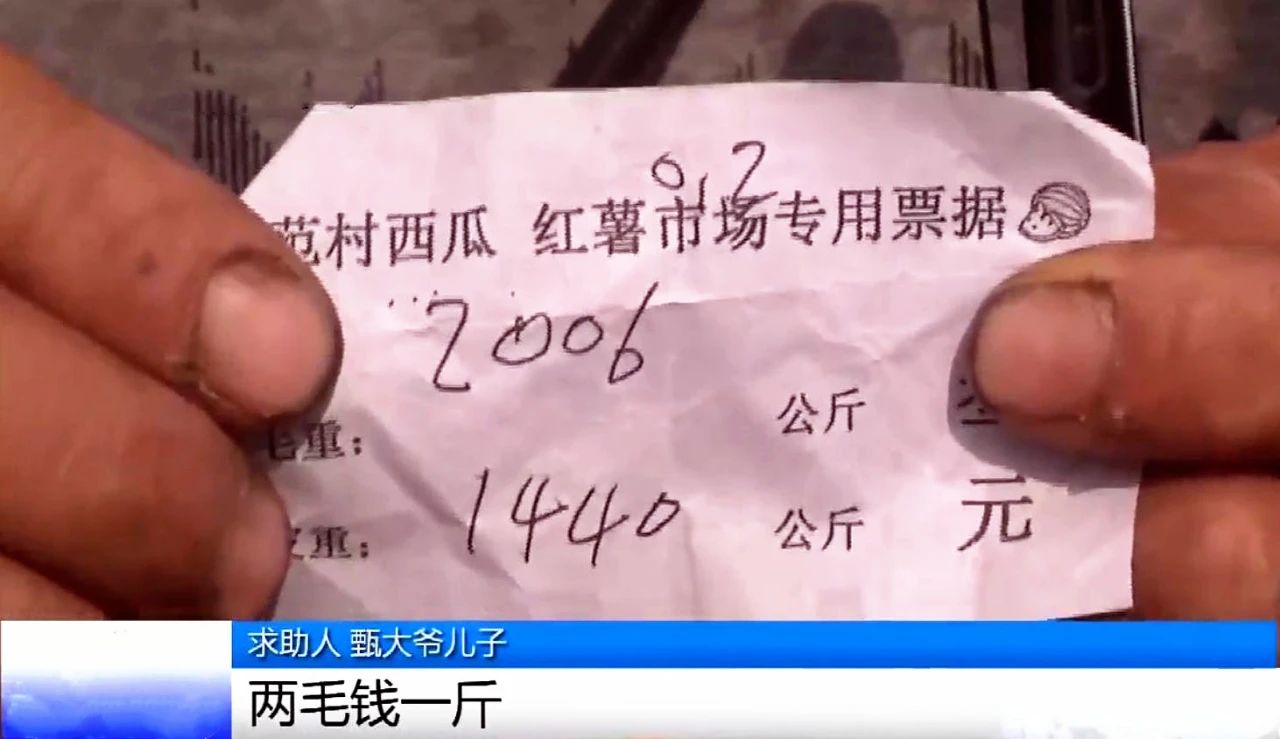 0.2
范村西瓜 红薯市场专用票据
2006
毛重： 公斤
1440
皮重： 公斤 元
求助人 甄大爷儿子
两毛钱一斤